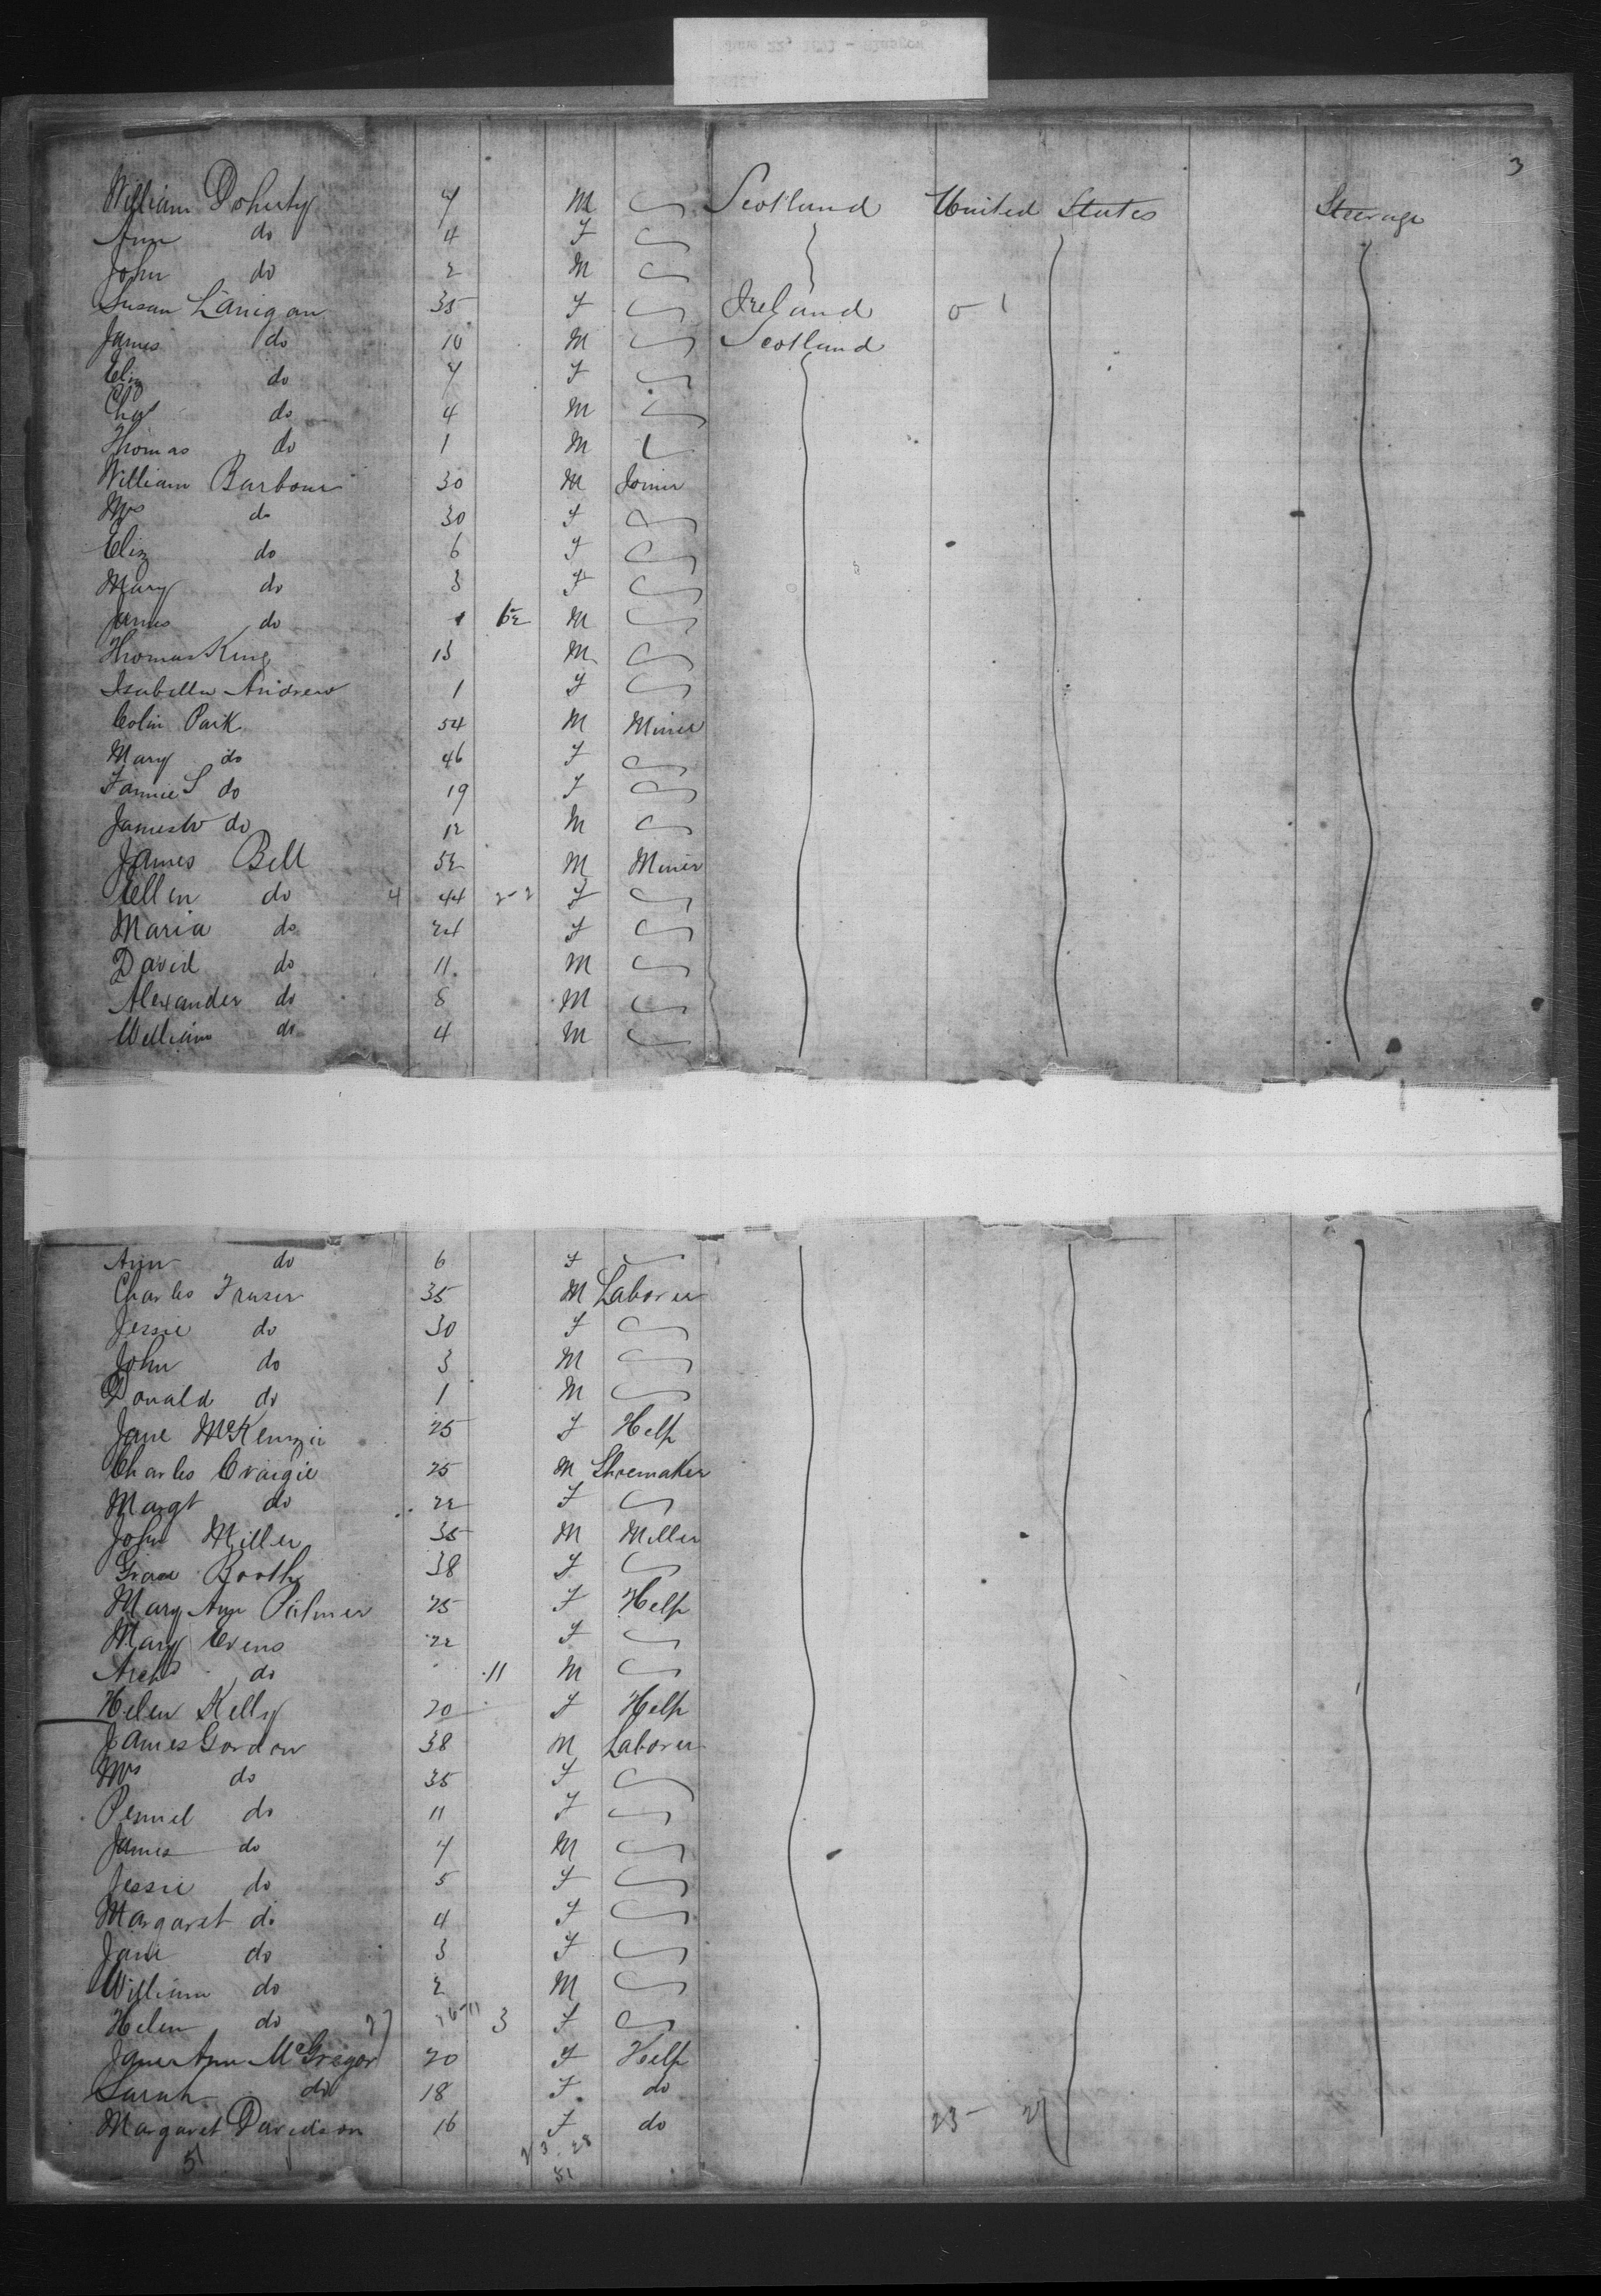 3
William Doherty 7 M Scotland United States Steerage
Ann do 4 F
John do 2 M
Susan Lanigan 35 F Ireland 0 1
James do 10 M Scotland
Eliz do 7 F
Chas do 4 M
Thomas do 1 M
William Barbour 30 M Joiner
Mrs do 30 F
Eliz do 6 F
Mary do 3 F
James do M
Thomas King 13 M
Isabella Andrew 1 F
Colin Park 54 M Miner
Mary do 46 F
Fannie S do 19 F
James W do 12 M
James Bell 52 M Miner
Ellen do 4 44 F
Maria do 24 F
David do 11 M
Alexander do 8 M
William do 4 M
Ann do 6 F
Charles Fraser 35 M Laborer
Jessie do 30 F
John do 3 M
Donald do 1 M
Jane McKenzie 25 F Help
Charles Craigie 25 M Shoemaker
Margt do 22 F
John Miller 35 M Miller
Grace Booth 38 F
Mary Ann Palmer 25 F Help
Mary Evens 22 F
Archd do 11 M
Helen Kelly 20 F Help
James Gordon 38 M Laborer
Mrs do 35 F
do 11 F
James do 7 M
Jessie do 5 F
Margaret do 4 F
Jane do 3 F
William do 2 M
Helen do 27 3 F
Jane Ann McGregor 20 F Help
Sarah do 18 F do
Margaret Davidson 16 F do 23 27
51 23 28
51